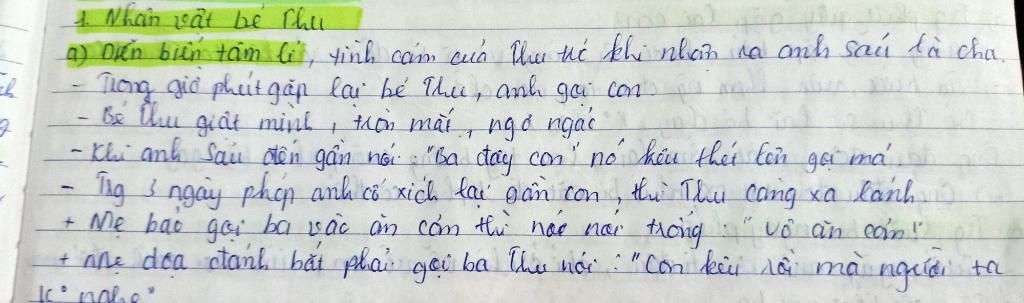 1. Nhân vật bé Thu
a) Diễn biến tâm lí, tình cảm của Thu từ khi nhận ra anh Sáu là cha.
- Trong giờ phút gặp lại bé Thu, anh gọi con
- Bé Thu giật mình, tròn mắt, ngơ ngác
- Khi anh Sáu đến gần nói: "Ba đây con" nó kêu thét lên gọi má
- Trg 3 ngày phép anh cố xích lại gần con, thì Thu càng xa lánh
+ Mẹ bảo gọi ba vào ăn cơm thì nói trống: "vô ăn cơm!"
+ Mẹ dọa đánh bắt phải gọi ba Thu nói: "Con kêu rồi mà người ta
k° nghe"